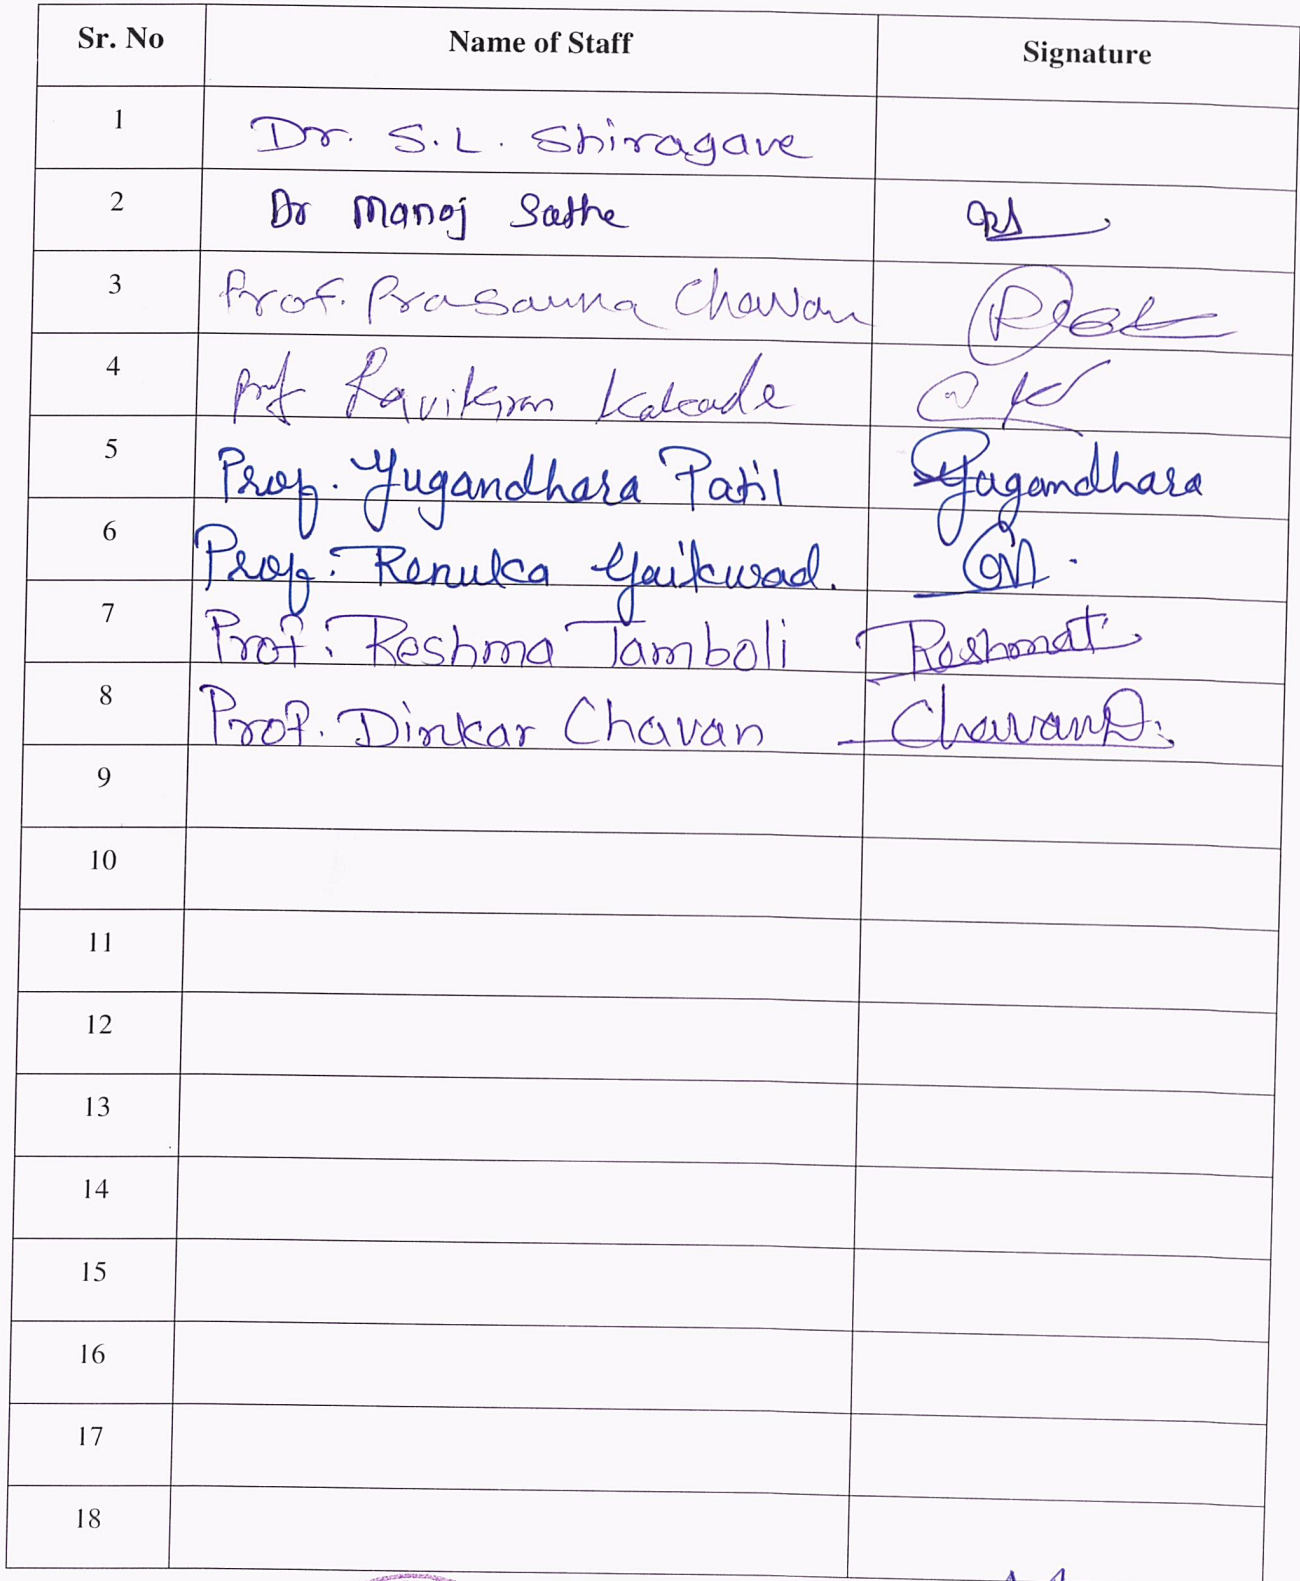 Sr. No Name of Staff Signature
1 Dr. S.L. Shiragave
2 Dr Manoj Sathe
3 Prof. Prasanna Chavan
4 Prof Ravikiran
5 Prof. Yugandhara Patil Yugandhara
6 Prof. Renuka Gaikwad.
7 Prof. Reshma Tamboli Reshmat
8 Prof. Dinkar Chavan ChavanD.
9
10
11
12
13
14
15
16
17
18